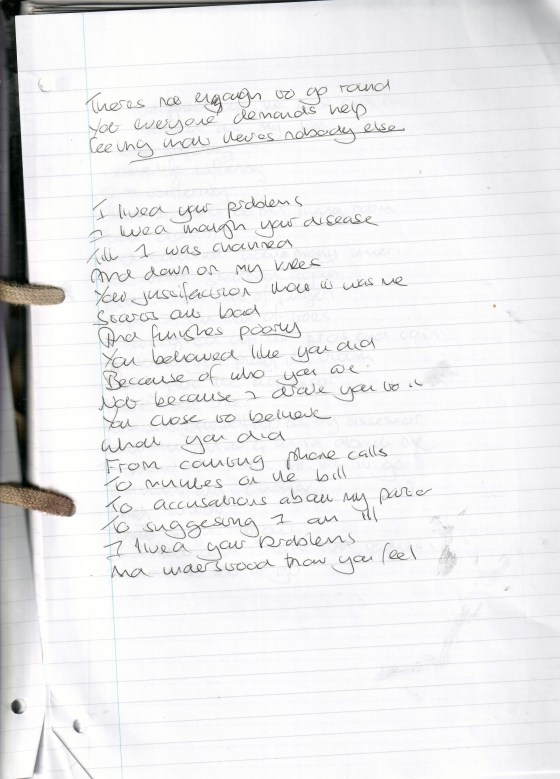 Theres not enough to go round
Yet everyone demands help
Seeing that theres nobody else
I lived your problems
I lived through your disease
Till I was chained
And down on my knees
Your justifaction that it was me
Starts out bad
And finishes poorly
You behaved like you did
Because of who you are
Not because I drove you to it
You chose to behave
what you did
From counting phone calls
To minutes on the bill
To accusations about my
To suggesting I am ill
I lived your problems
And understood how you feel